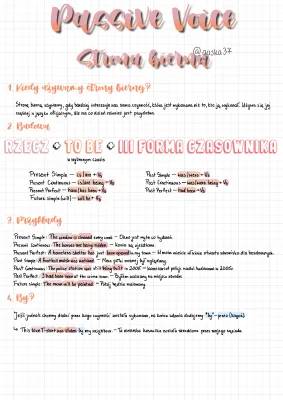 Passive Voice
Strona bierna
@gusia37
1. Kiedy używamy strony biernej?
Stronę bierną używamy, gdy bardziej interesuje nas sama czynność, która jest wykonana niż to, kto ją wykonał. Używa się jej
częściej w języku oficjalnym, ale na co dzień również jest przydatna.
2. Budowa
RZECZ + TO BE + III FORMA CZASOWNIKA
w wybranym czasie
Present Simple — is/are + V3
Present Continuous — is/are being + V3
Present Perfect — have/has been + V3
Future simple (will) — will be + V3
Past Simple — was/were + V3
Past Continuous — was/were being + V3
Past Perfect — had been + V3
3. Przykłady
Present Simple: The window is cleaned every week — Okno jest myte co tydzień.
Present Continuous: The houses are being hidden. —
Present Perfect: A homeless shelter has just been opened in my town — W moim mieście właśnie otwarto schronisko dla bezdomnych.
Past Simple:
Past Continuous: The police station was still being built in 2005 — komisariat policji nadal budowano w 2005r.
Past Perfect:
Future simple: The room will be painted. — Pokój będzie malowany.
4. By?
Jeśli jednak chcemy dodać przez kogo czynność została wykonana, na końcu zdania dodajemy "by" - przez (kogoś)
↳ This blue T-shirt was stolen by my neighbour. - Ta niebieska koszulka została skradziona przez mojego sąsiada.